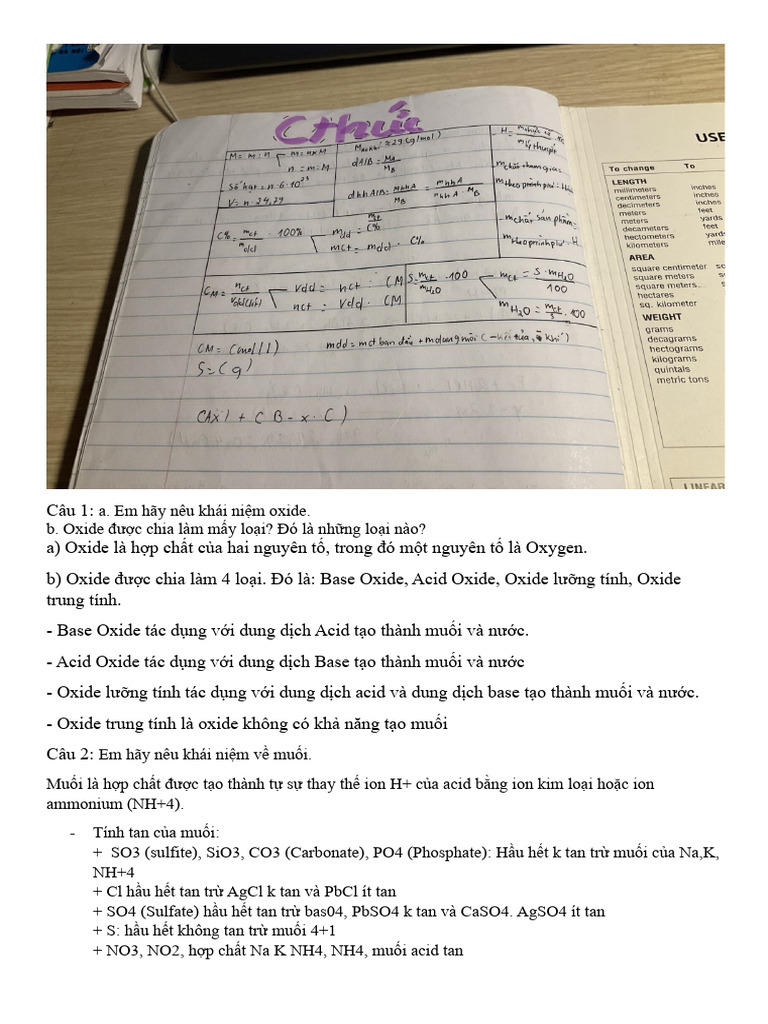 Cthức
M = m : n
m = n×M
n = m : M
Số hạt = n·6·10²³
V = n·24,79
M không khí ≈ 29 (g/mol)
dA/B = MA/MB
H =
m chất tham gia =
m chất sản phẩm =
C% = mct/mdd · 100%
mdd = mct/C%
mct = mdd · C%
CM = nct/Vdd
Vdd = nct : CM
nct = Vdd · CM
S = mct/mH2O · 100
mct = S·mH2O/100
mH2O = mct/S · 100
CM = (mol/l)
mdd = mct ban đầu + mdung môi (- kết tủa, khí)
S = (g)
(Ax) + (B - x · C)
USE
To change To
LENGTH
millimeters inches
centimeters inches
decimeters inches
meters feet
decameters feet
hectometers yards
kilometers mile
AREA
square centimeter
square meters
square meters
hectares
sq. kilometer
WEIGHT
grams
decagrams
hectograms
kilograms
quintals
metric tons
LINEAR
Câu 1: a. Em hãy nêu khái niệm oxide.
b. Oxide được chia làm mấy loại? Đó là những loại nào?
a) Oxide là hợp chất của hai nguyên tố, trong đó một nguyên tố là Oxygen.
b) Oxide được chia làm 4 loại. Đó là: Base Oxide, Acid Oxide, Oxide lưỡng tính, Oxide
trung tính.
- Base Oxide tác dụng với dung dịch Acid tạo thành muối và nước.
- Acid Oxide tác dụng với dung dịch Base tạo thành muối và nước
- Oxide lưỡng tính tác dụng với dung dịch acid và dung dịch base tạo thành muối và nước.
- Oxide trung tính là oxide không có khả năng tạo muối
Câu 2: Em hãy nêu khái niệm về muối.
Muối là hợp chất được tạo thành tự sự thay thế ion H+ của acid bằng ion kim loại hoặc ion
ammonium (NH+4).
- Tính tan của muối:
+ SO3 (sulfite), SiO3, CO3 (Carbonate), PO4 (Phosphate): Hầu hết k tan trừ muối của Na,K,
NH+4
+ Cl hầu hết tan trừ AgCl k tan và PbCl ít tan
+ SO4 (Sulfate) hầu hết tan trừ bas04, PbSO4 k tan và CaSO4. AgSO4 ít tan
+ S: hầu hết không tan trừ muối 4+1
+ NO3, NO2, hợp chất Na K NH4, NH4, muối acid tan